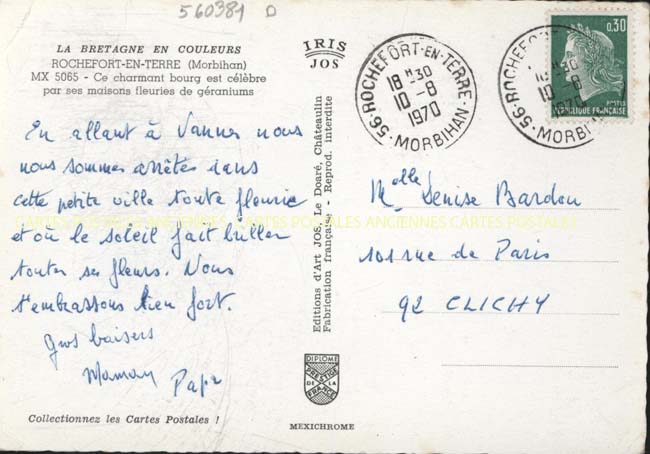 560381 D
LA BRETAGNE EN COULEURS
ROCHEFORT-EN-TERRE (Morbihan)
MX 5065 - Ce charmant bourg est célèbre
par ses maisons fleuries de géraniums
En allant à Vannes nous
nous sommes arrêtés dans
cette petite ville toute fleurie
et où le soleil fait briller
toutes ses fleurs. Nous
t'embrassons bien fort.
Gros baisers
Maman Papa
Collectionnez les Cartes Postales !
IRIS
JOS
Editions d'Art JOS, Le Doaré, Châteaulin
Fabrication française - Reprod. interdite
DIPLOME
PRESTIGE
DE LA
FRANCE
MEXICHROME
56·ROCHEFORT-EN-TERRE·
18 H 30
10-8
1970
MORBIHAN
56·ROCHEFORT-EN-TERRE
18 H 30
10-8
1970
MORBIHAN
0,30
POSTES
REPUBLIQUE FRANÇAISE
Melle Denise Bardou
101 rue de Paris
92 CLICHY
CARTES POSTALES ANCIENNES CARTES POSTALES ANCIENNES CARTES POSTALES